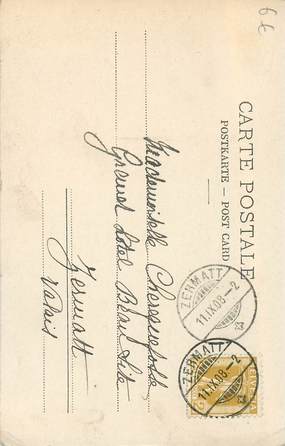 6€
CARTE POSTALE
POSTKARTE — POST CARD
ZERMATT
11.IX.08-2
ZERMATT
11.IX.08-2
HELVETIA
Mademoiselle
Grand Hotel Beau Site
Zermatt
Valais